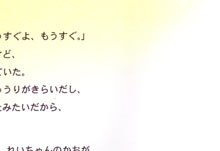 うすぐよ、もうすぐ。」
けど、
ていた。
ゅうりがきらいだし、
たみたいだから、
、れいちゃんのかおが